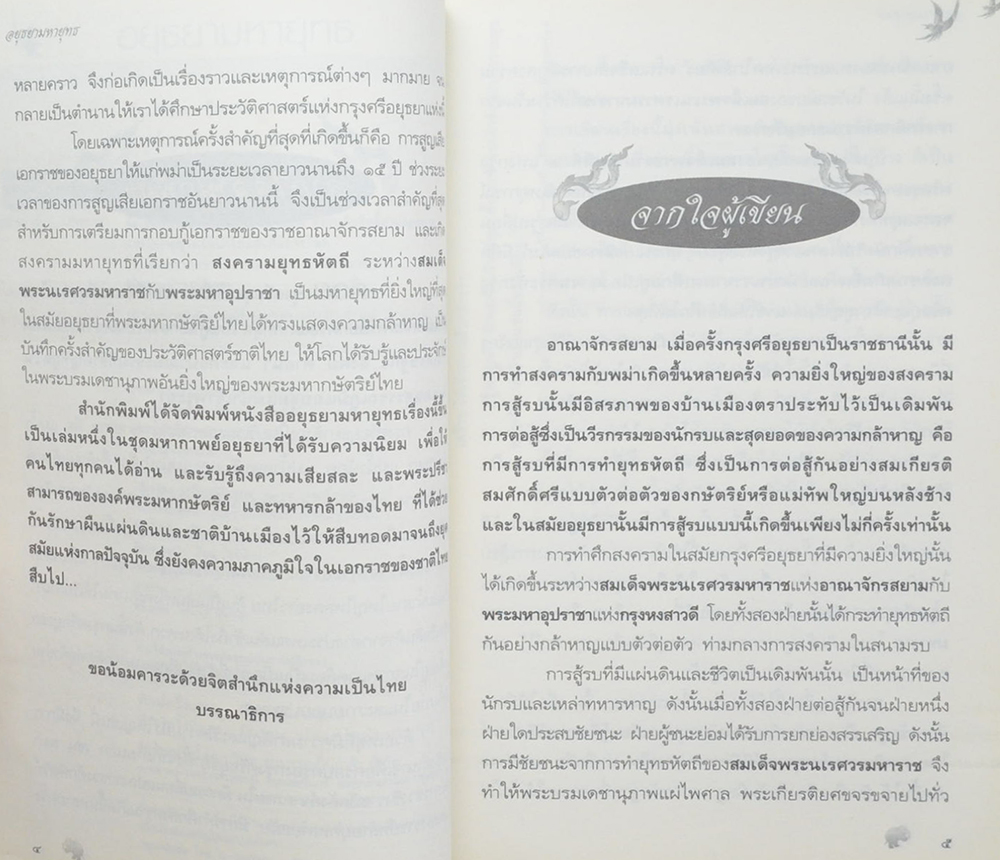 อยุธยามหายุทธ
หลายคราว จึงก่อเกิดเป็นเรื่องราวและเหตุการณ์ต่างๆ มากมาย จน
กลายเป็นตำนานให้เราได้ศึกษาประวัติศาสตร์แห่งกรุงศรีอยุธยา
โดยเฉพาะเหตุการณ์ครั้งสำคัญที่สุดที่เกิดขึ้นก็คือ การสูญเสีย
เอกราชของอยุธยาให้แก่พม่าเป็นระยะเวลายาวนานถึง ๑๕ ปี ช่วงระยะ
เวลาของการสูญเสียเอกราชอันยาวนานนี้ จึงเป็นช่วงเวลาสำคัญที่สุด
สำหรับการเตรียมการกอบกู้เอกราชของราชอาณาจักรสยาม และเกิด
สงครามมหายุทธที่เรียกว่า สงครามยุทธหัตถี ระหว่างสมเด็จ
พระนเรศวรมหาราชกับพระมหาอุปราชา เป็นมหายุทธที่ยิ่งใหญ่ที่สุด
ในสมัยอยุธยาที่พระมหากษัตริย์ไทยได้ทรงแสดงความกล้าหาญ เป็น
บันทึกครั้งสำคัญของประวัติศาสตร์ชาติไทย ให้โลกได้รับรู้และประจักษ์
ในพระบรมเดชานุภาพอันยิ่งใหญ่ของพระมหากษัตริย์ไทย
สำนักพิมพ์ได้จัดพิมพ์หนังสืออยุธยามหายุทธเรื่องนี้ขึ้น
เป็นเล่มหนึ่งในชุดมหากาพย์อยุธยาที่ได้รับความนิยม เพื่อให้
คนไทยทุกคนได้อ่าน และรับรู้ถึงความเสียสละ และพระปรีชา
สามารถขององค์พระมหากษัตริย์ และทหารกล้าของไทย ที่ได้ช่วย
กันรักษาผืนแผ่นดินและชาติบ้านเมืองไว้ให้สืบทอดมาจนถึงยุค
สมัยแห่งกาลปัจจุบัน ซึ่งยังคงความภาคภูมิใจในเอกราชของชาติไทย
สืบไป...
ขอน้อมคารวะด้วยจิตสำนึกแห่งความเป็นไทย
บรรณาธิการ
๔
จากใจผู้เขียน
อาณาจักรสยาม เมื่อครั้งกรุงศรีอยุธยาเป็นราชธานีนั้น มี
การทำสงครามกับพม่าเกิดขึ้นหลายครั้ง ความยิ่งใหญ่ของสงคราม
การสู้รบนั้นมีอิสรภาพของบ้านเมืองตราประทับไว้เป็นเดิมพัน
การต่อสู้ซึ่งเป็นวีรกรรมของนักรบและสุดยอดของความกล้าหาญ คือ
การสู้รบที่มีการทำยุทธหัตถี ซึ่งเป็นการต่อสู้กันอย่างสมเกียรติ
สมศักดิ์ศรีแบบตัวต่อตัวของกษัตริย์หรือแม่ทัพใหญ่บนหลังช้าง
และในสมัยอยุธยานั้นมีการสู้รบแบบนี้เกิดขึ้นเพียงไม่กี่ครั้งเท่านั้น
การทำศึกสงครามในสมัยกรุงศรีอยุธยาที่มีความยิ่งใหญ่นั้น
ได้เกิดขึ้นระหว่างสมเด็จพระนเรศวรมหาราชแห่งอาณาจักรสยามกับ
พระมหาอุปราชาแห่งกรุงหงสาวดี โดยทั้งสองฝ่ายนั้นได้กระทำยุทธหัตถี
กันอย่างกล้าหาญแบบตัวต่อตัว ท่ามกลางการสงครามในสนามรบ
การสู้รบที่มีแผ่นดินและชีวิตเป็นเดิมพันนั้น เป็นหน้าที่ของ
นักรบและเหล่าทหารหาญ ดังนั้นเมื่อทั้งสองฝ่ายต่อสู้กันจนฝ่ายหนึ่ง
ฝ่ายใดประสบชัยชนะ ฝ่ายผู้ชนะย่อมได้รับการยกย่องสรรเสริญ ดังนั้น
การมีชัยชนะจากการทำยุทธหัตถีของสมเด็จพระนเรศวรมหาราช จึง
ทำให้พระบรมเดชานุภาพแผ่ไพศาล พระเกียรติยศขจรขจายไปทั่ว
๕